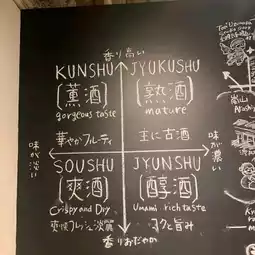 香り高い
KUNSHU
[薫酒]
gorgeous taste
華やかフルーティ
JYUKUSHU
[熟酒]
mature
主に古酒
味が淡い
味が濃い
SOUSHU
[爽酒]
Crispy and Dry
爽快フレッシュ淡麗
JYUNSHU
[醇酒]
Umami rich taste
コクと旨み
香りおだやか
嵐山